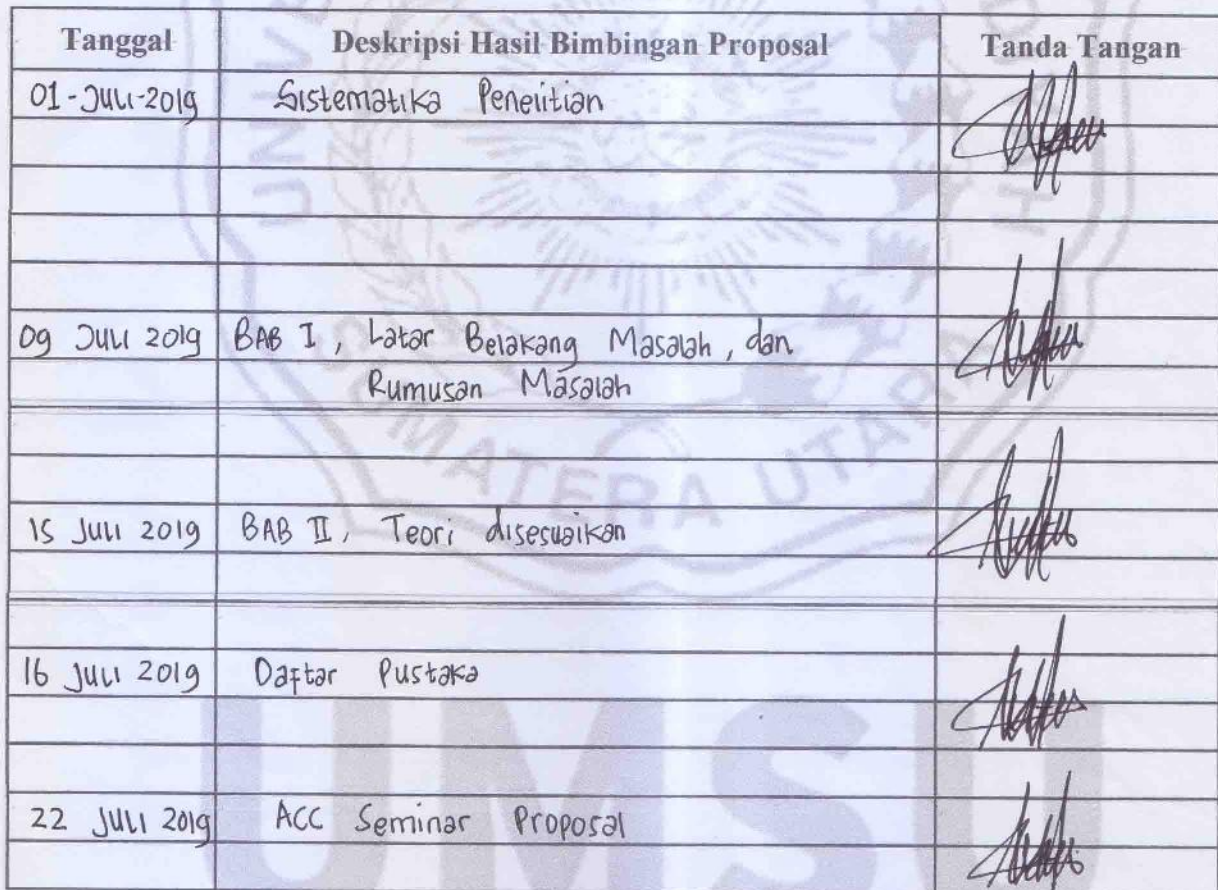 Tanggal Deskripsi Hasil Bimbingan Proposal Tanda Tangan
01-Juli-2019 Sistematika Penelitian
09 Juli 2019 BAB I, Latar Belakang Masalah, dan
Rumusan Masalah
15 Juli 2019 BAB II, Teori disesuaikan
16 Juli 2019 Daftar Pustaka
22 Juli 2019 ACC Seminar Proposal
SUMATERA UTARA
UMSU